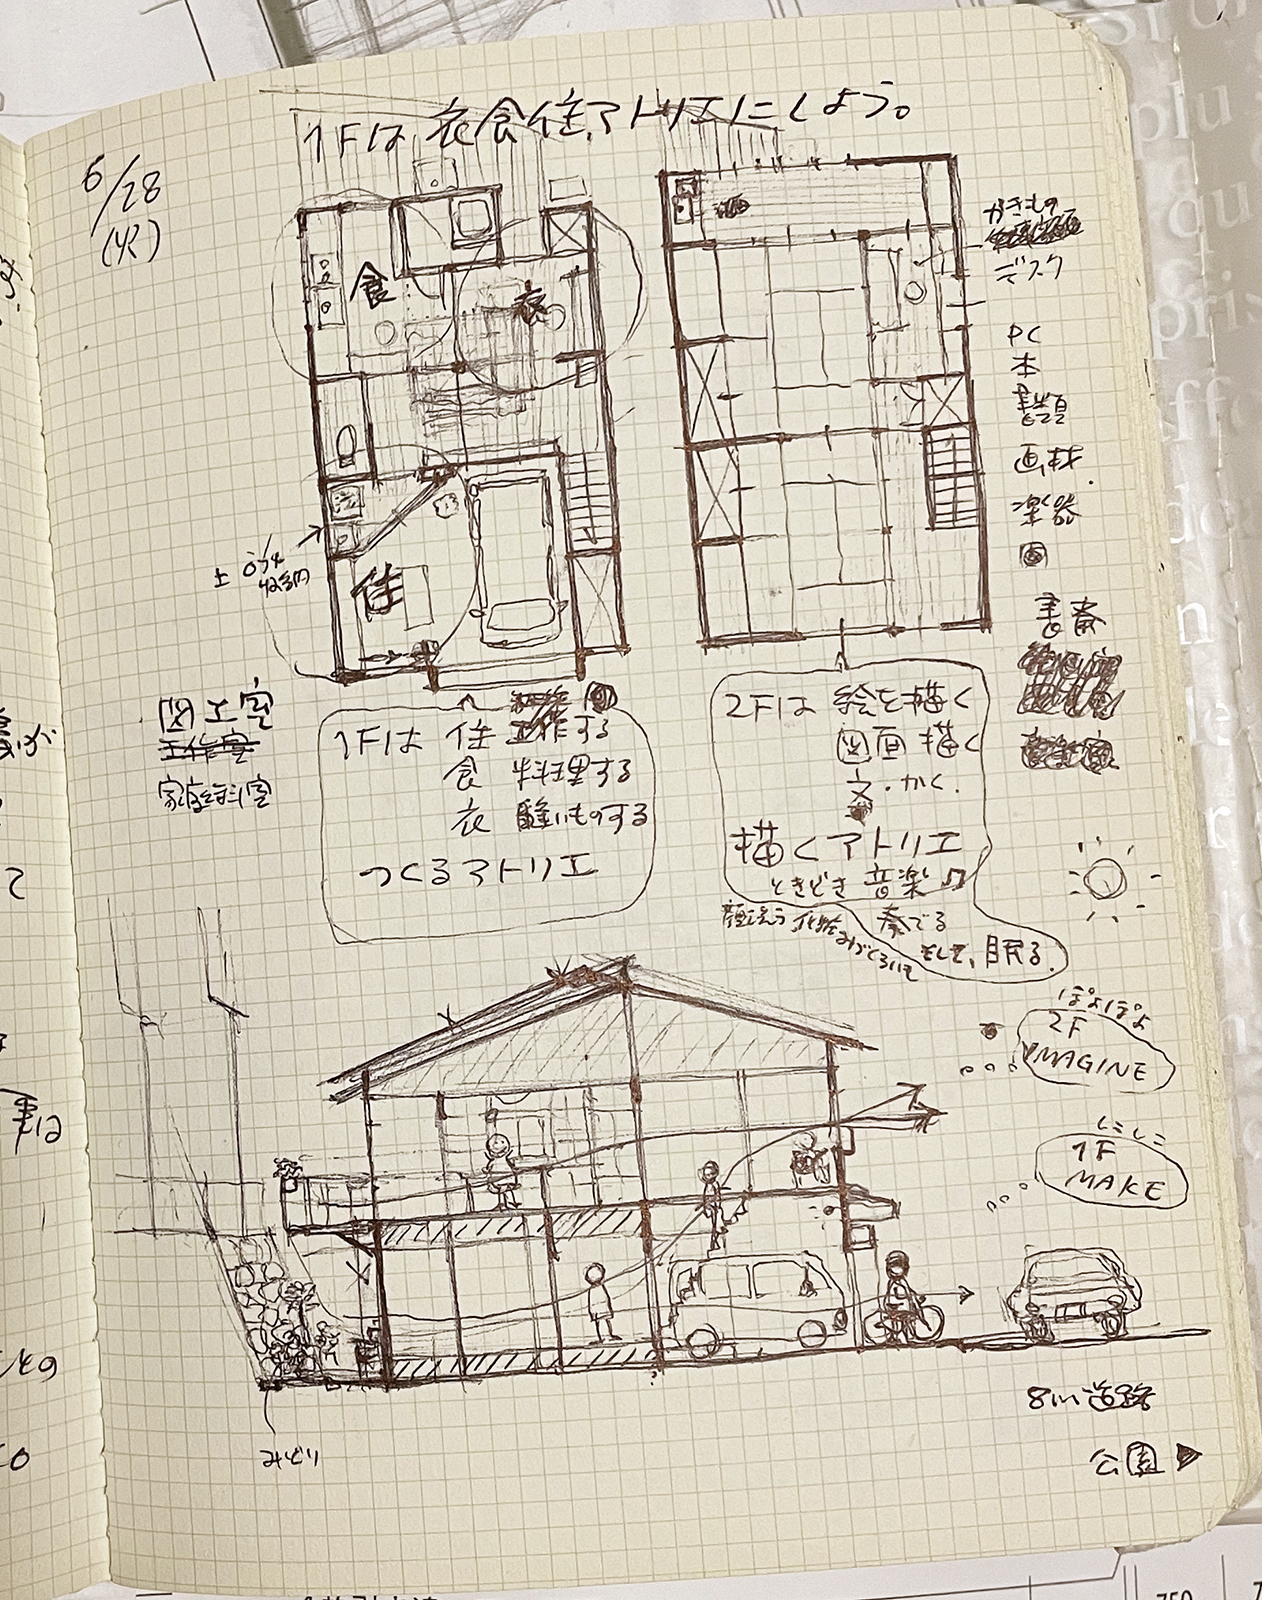 1Fは 衣食住アトリエにしよう。
6/28
(火)
食
衣
住
土
かきもの
デスク
PC
本
書類
画材
楽器
書斎
図工室
工作室
家庭科室
1Fは 住 工作する
食 料理する
衣 縫いものする
つくるアトリエ
2Fは 絵を描く
図面描く
文・かく.
描くアトリエ
ときどき 音楽♫
奏でる
そして、眠る.
顔を洗う 化粧
ぽよぽよ
2F
IMAGINE
にこにこ
1F
MAKE
みどり
8m道路
公園▶